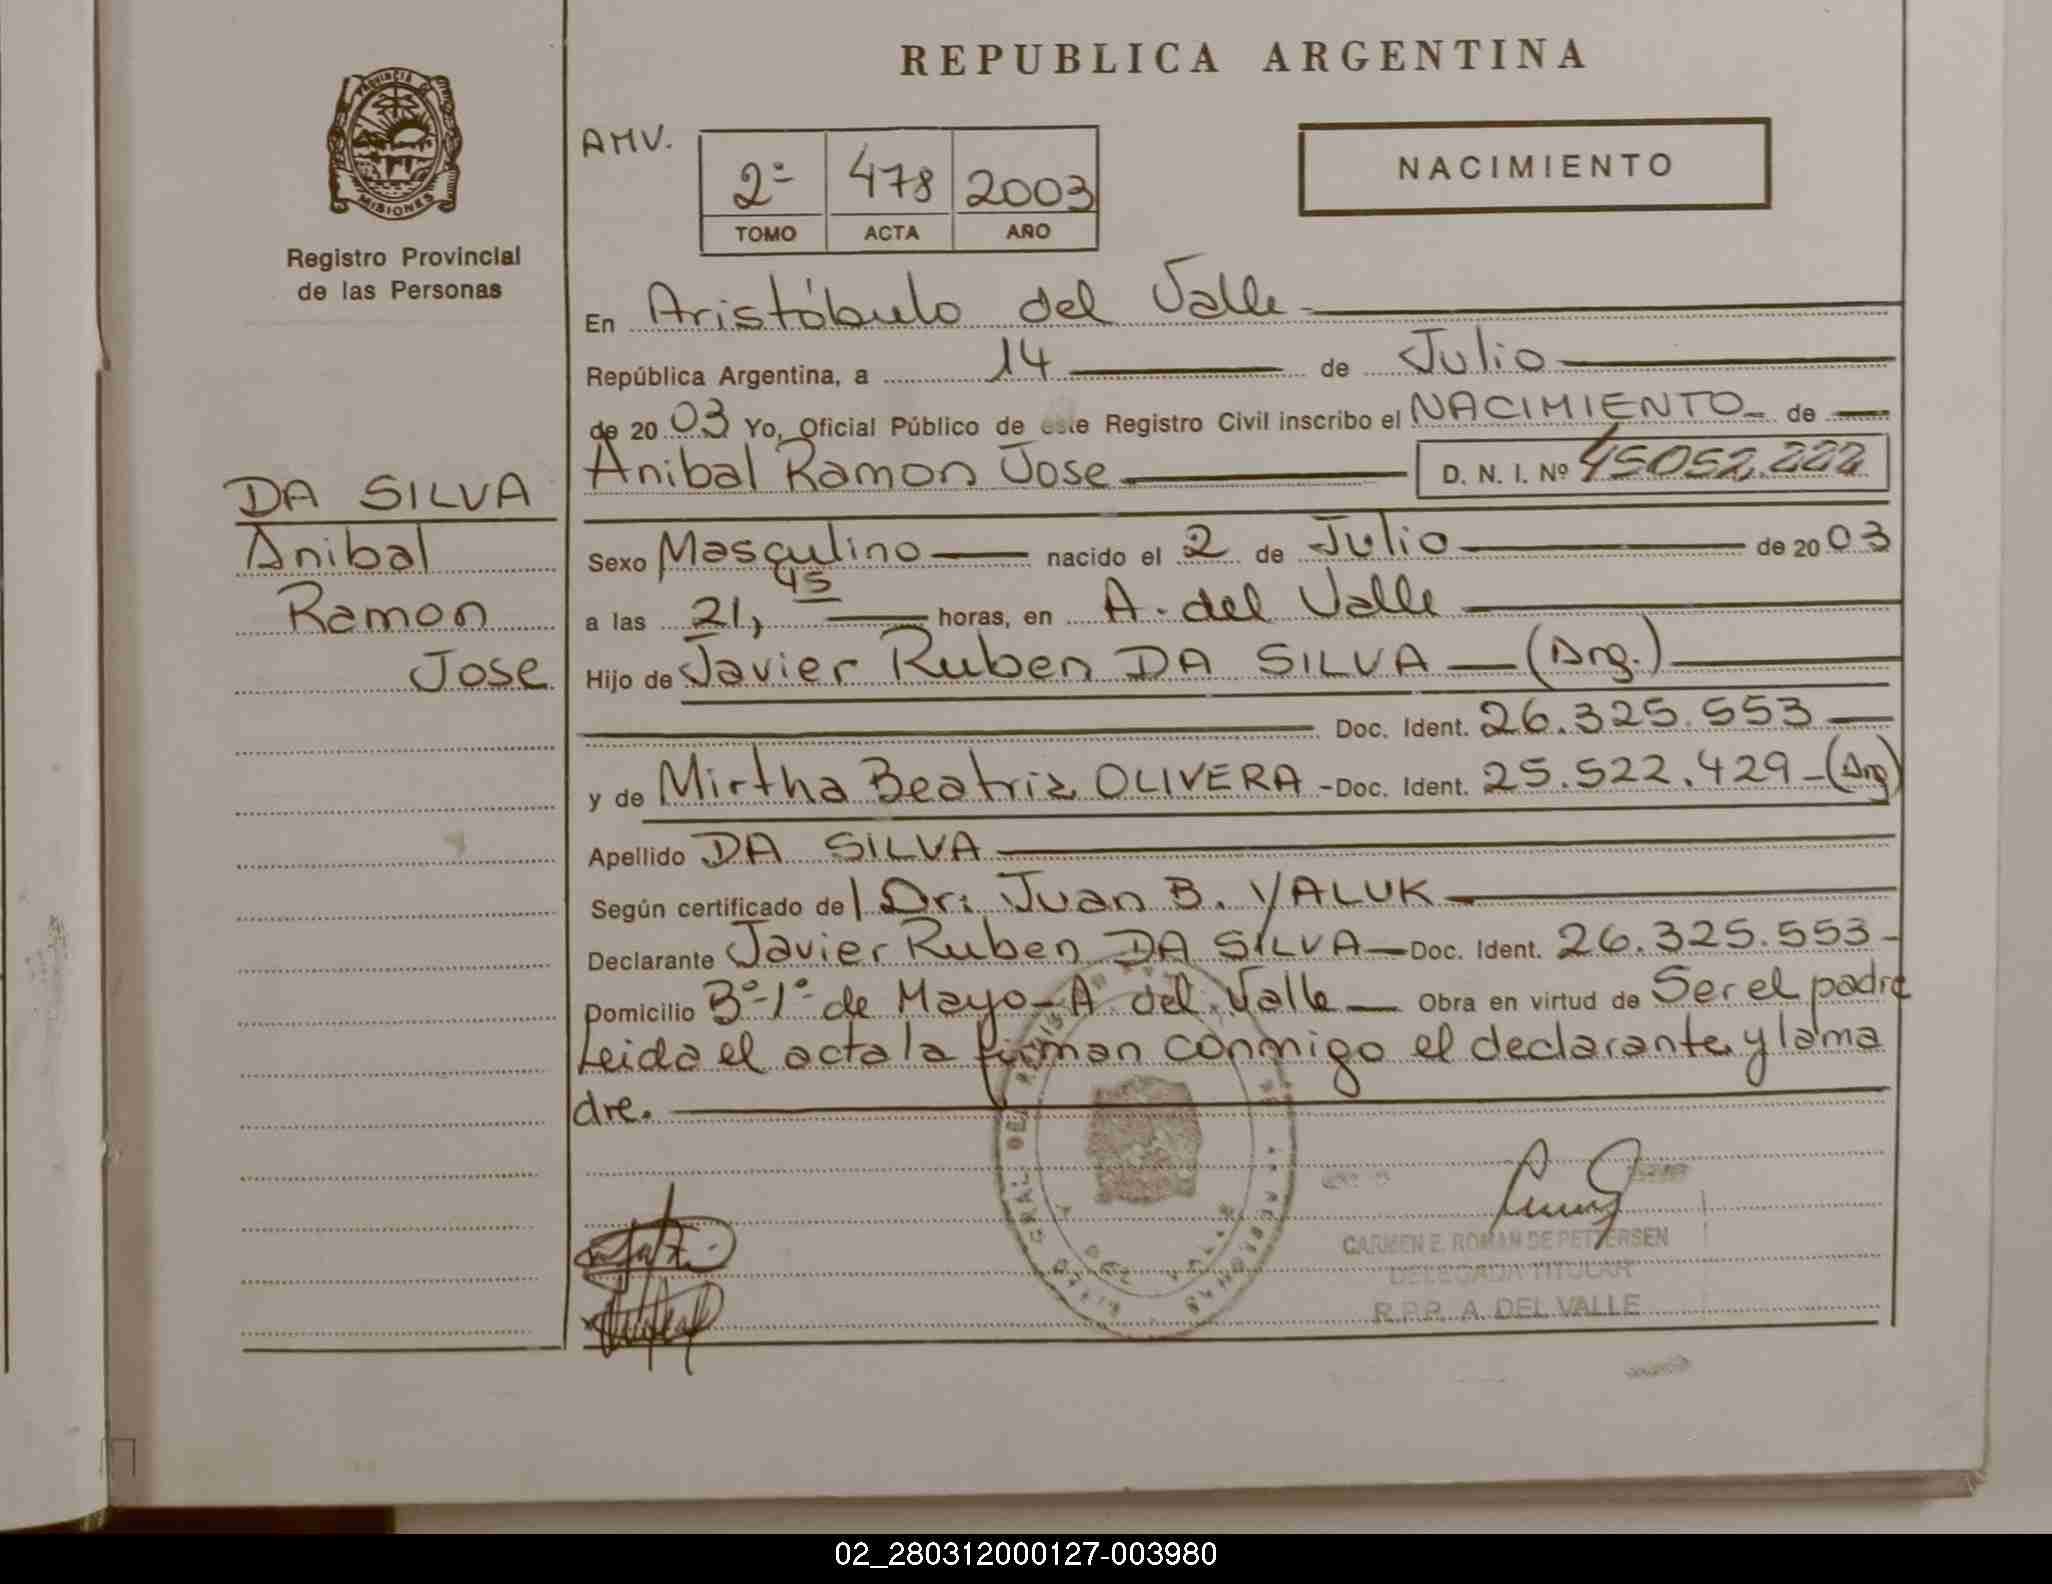 REPUBLICA ARGENTINA
PROVINCIA DE
MISIONES
Registro Provincial
de las Personas
AMV.
2º 478 2003
TOMO ACTA AÑO
NACIMIENTO
En Aristóbulo del Valle
República Argentina, a 14 de Julio
de 2003 Yo, Oficial Público de este Registro Civil inscribo el NACIMIENTO de
Anibal Ramon Jose D. N. I. Nº 45052.222
DA SILVA
Anibal
Ramon
Jose
Sexo Masculino nacido el 2 de Julio de 2003
a las 21,45 horas, en A. del Valle
Hijo de Javier Ruben DA SILVA (Arg.)
Doc. Ident. 26.325.553
y de Mirtha Beatriz OLIVERA - Doc. Ident. 25.522.429 - (Arg)
Apellido DA SILVA
Según certificado del Dr: Juan B. YALUK
Declarante Javier Ruben DA SILVA - Doc. Ident. 26.325.553 -
Domicilio Bº-1º de Mayo - A del Valle Obra en virtud de Ser el padre
Leida el acta la firman conmigo el declarante y la ma
dre.
CARMEN E. ROMAN DE PETTERSEN
DELEGADA TITULAR
R.P.P. A. DEL VALLE
02_280312000127-003980